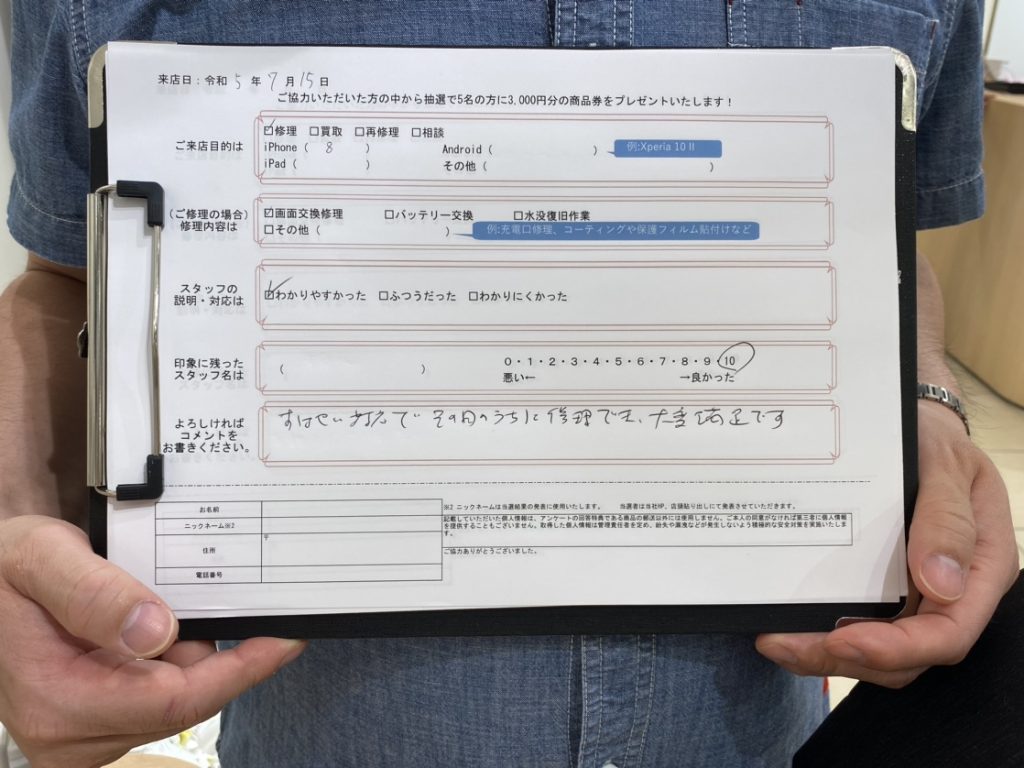 来店日：令和 5 年 7 月 15 日
ご協力いただいた方の中から抽選で5名の方に3,000円分の商品券をプレゼントいたします！
ご来店目的は
☑修理 □買取 □再修理 □相談
iPhone（ 8 ） Android（ ） 例:Xperia 10 II
iPad（ ） その他（ ）
（ご修理の場合）
修理内容は
☑画面交換修理 □バッテリー交換 □水没復旧作業
□その他（ ） 例:充電口修理、コーティングや保護フィルム貼付けなど
スタッフの
説明・対応は
☑わかりやすかった □ふつうだった □わかりにくかった
印象に残った
スタッフ名は
（ ） 0・1・2・3・4・5・6・7・8・9・10
悪い← →良かった
よろしければ
コメントを
お書きください。
すばやい対応で その日のうちに修理でき、大変満足です
お名前
ニックネーム※2
住所 〒
電話番号
※2 ニックネームは当選結果の発表に使用いたします。 当選者は当社HP、店頭貼り出しにて発表させていただきます。
記載していただいた個人情報は、アンケートの回答特典である商品の郵送以外には使用しません。ご本人の同意がなければ第三者に個人情報
を提供することもございません。取得した個人情報は管理責任者を定め、紛失や漏洩などが発生しないよう積極的な安全対策を実施いたしま
す。
ご協力ありがとうございました。